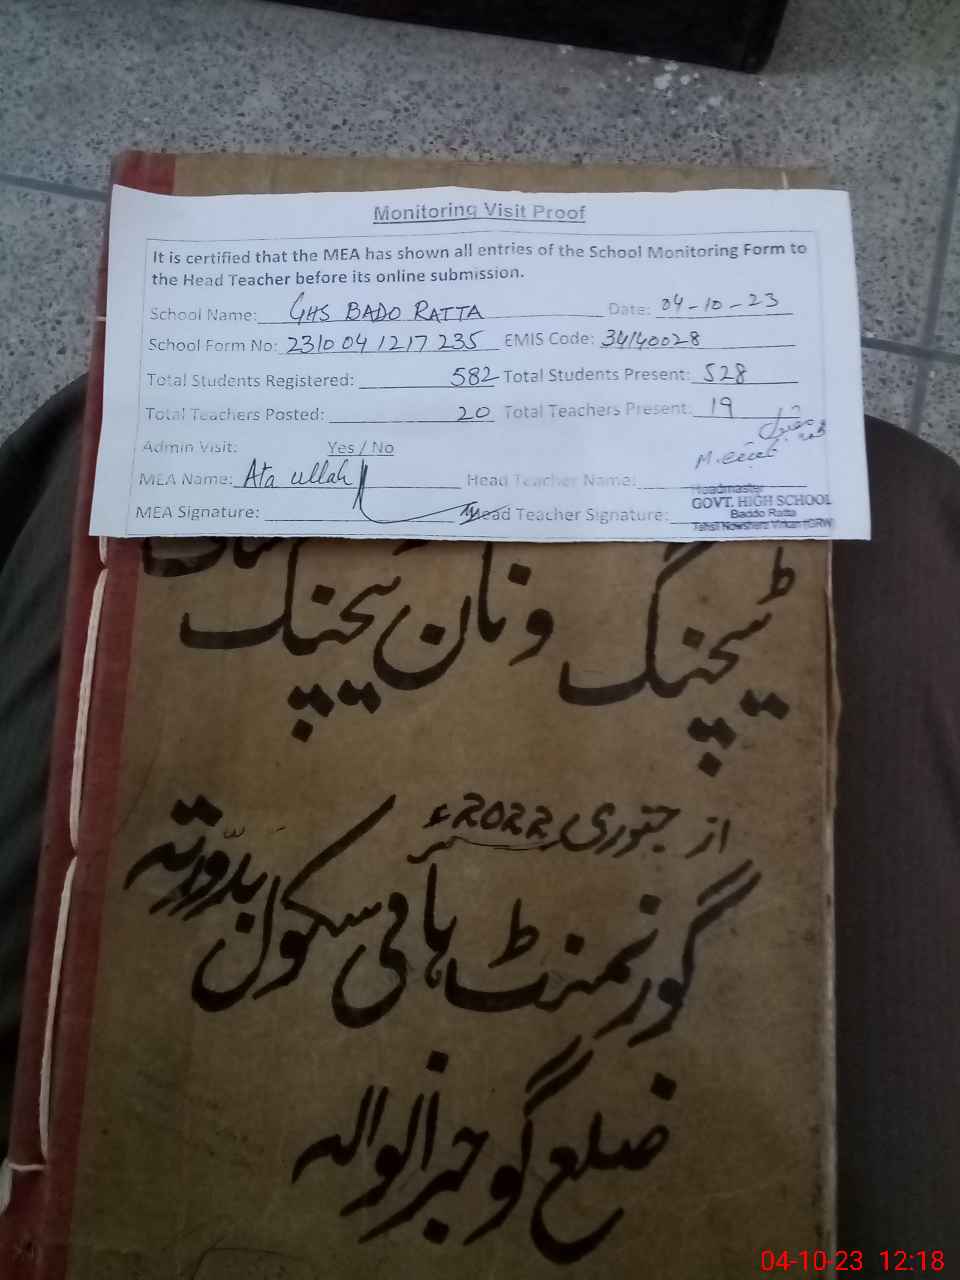 Monitoring Visit Proof
It is certified that the MEA has shown all entries of the School Monitoring Form to
the Head Teacher before its online submission.
School Name: GHS BADO RATTA Date: 04-10-23
School Form No: 2310 04 1217 235 EMIS Code: 34140028
Total Students Registered: 582 Total Students Present: 528
Total Teachers Posted: 20 Total Teachers Present: 19
Admin Visit: Yes / No
MEA Name: Ata ullah Head Teacher Name:
MEA Signature: Head Teacher Signature:
Headmaster
GOVT. HIGH SCHOOL
Baddo Ratta
Tehsil Nowshera Virkan (GRW)
ٹیچنگ و نان ٹیچنگ
از جنوری 2022ء
گورنمنٹ ہائی سکول بدورتہ
ضلع گوجرانوالہ
04-10-23 12:18